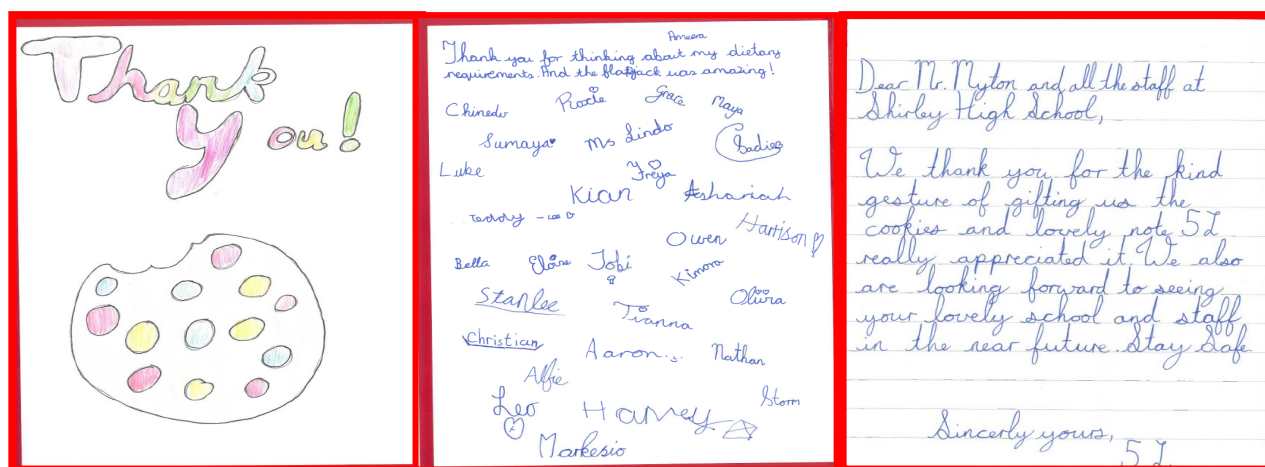 Thank
You!
Ameera
Thank you for thinking about my dietary
requirements. And the flapjack was amazing!
Chinedu Roxie Grace Maya
Sumaya Ms Lindo Sadie
Luke Freya
Kian Ashariah
Teddy - Lee
Owen Harrison
Bella Eloise Tobi Kimora
Stanlee Tianna Olivia
Christian Aaron Nathan
Alfie
Leo Harvey Storm
Markesio
Dear Mr. Myton and all the staff at
Shirley High School,
We thank you for the kind
gesture of gifting us the
cookies and lovely note 5L
really appreciated it. We also
are looking forward to seeing
your lovely school and staff
in the near future. Stay Safe.
Sincerly yours,
5L